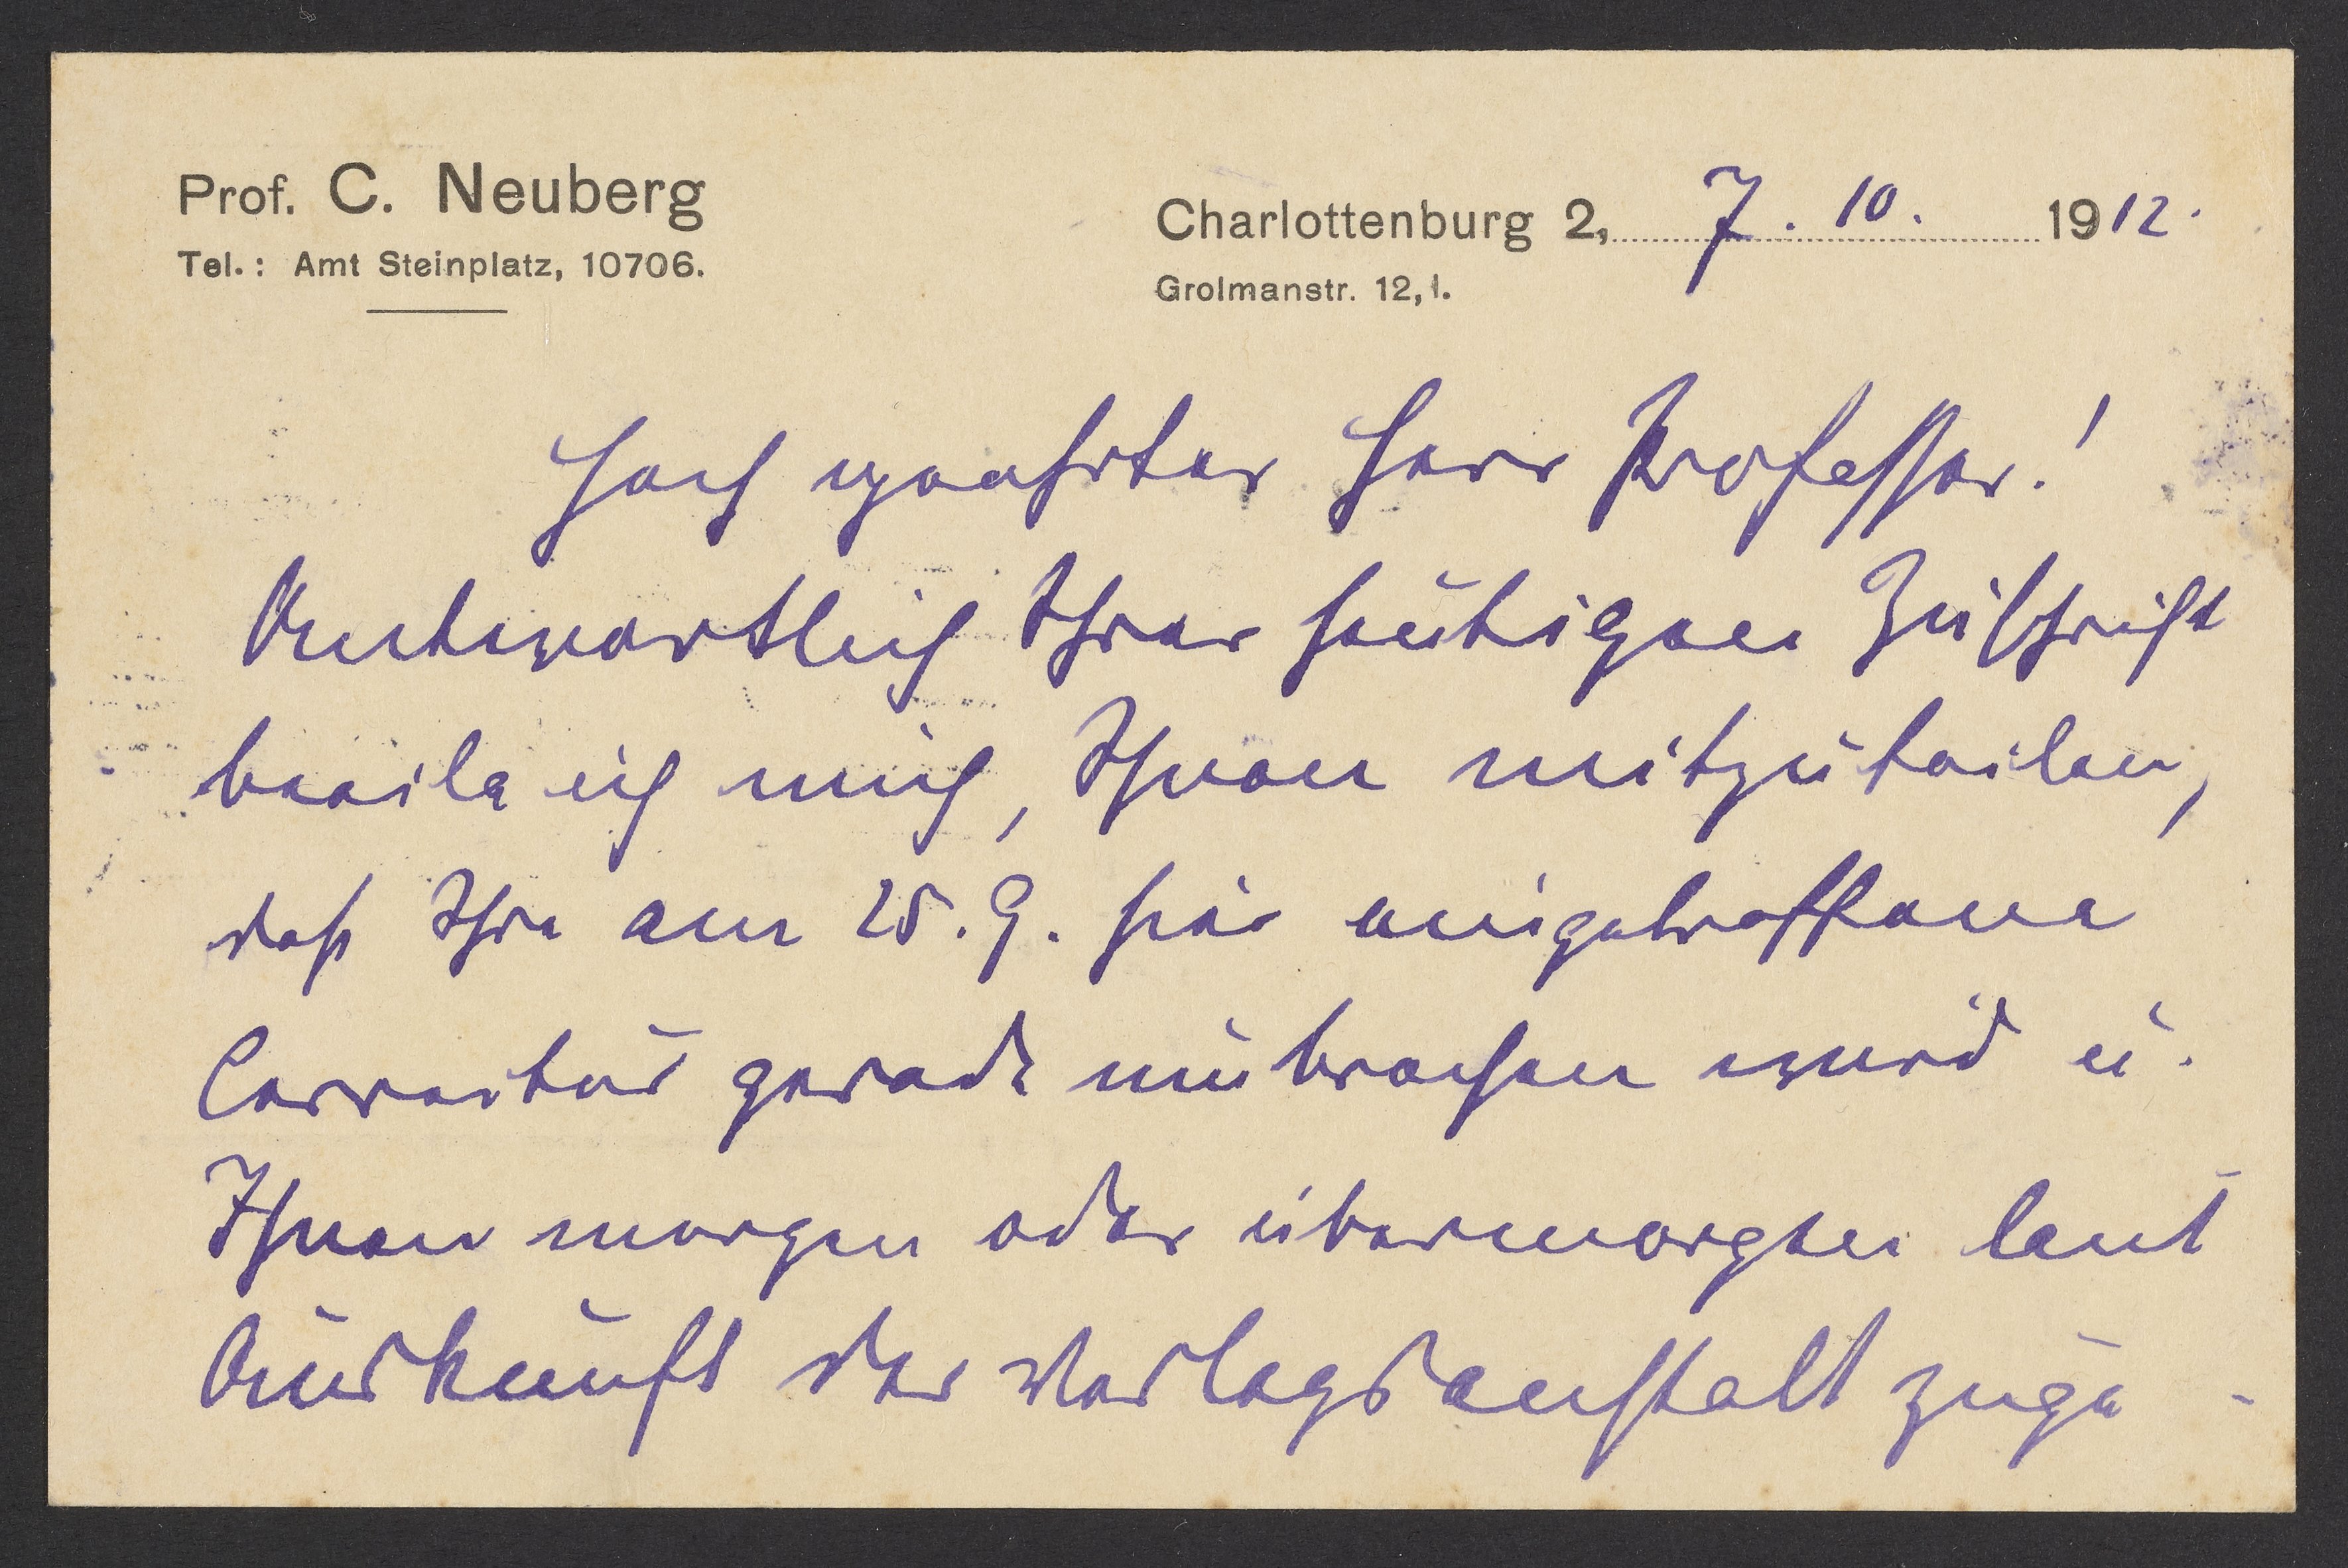 Prof. C. Neuberg
Tel.: Amt Steinplatz, 10706.
Charlottenburg 2, 7. 10. 1912.
Grolmanstr. 12, I.
Hochgeehrter Herr Professor!
Antwortlich Ihrer heutigen Zuschrift
beeile ich mich, Ihnen mitzuteilen,
daß Ihre am 25. 9. hier eingetroffene
Correctur gerade umbrochen wird u.
Ihnen morgen oder übermorgen laut
Auskunft der Verlagsanstalt zuge-